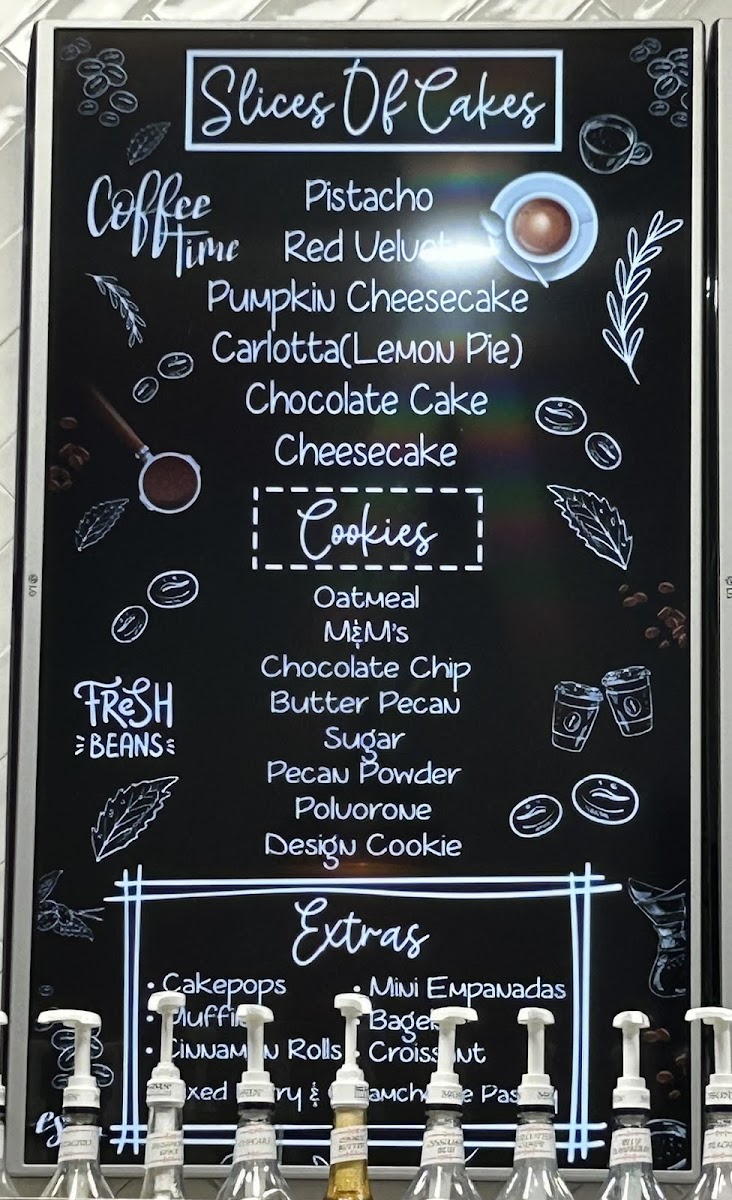 Slices Of Cakes
Coffee Time
Pistacho
Red Velvet
Pumpkin Cheesecake
Carlotta(Lemon Pie)
Chocolate Cake
Cheesecake
Cookies
Oatmeal
M&M's
Chocolate Chip
Butter Pecan
Sugar
Pecan Powder
Polvorone
Design Cookie
FReSH
BEANS
Extras
• Cakepops
• Muffin
• Cinnamon Rolls
• Mini Empanadas
• Bagel
• Croissant
&
LG